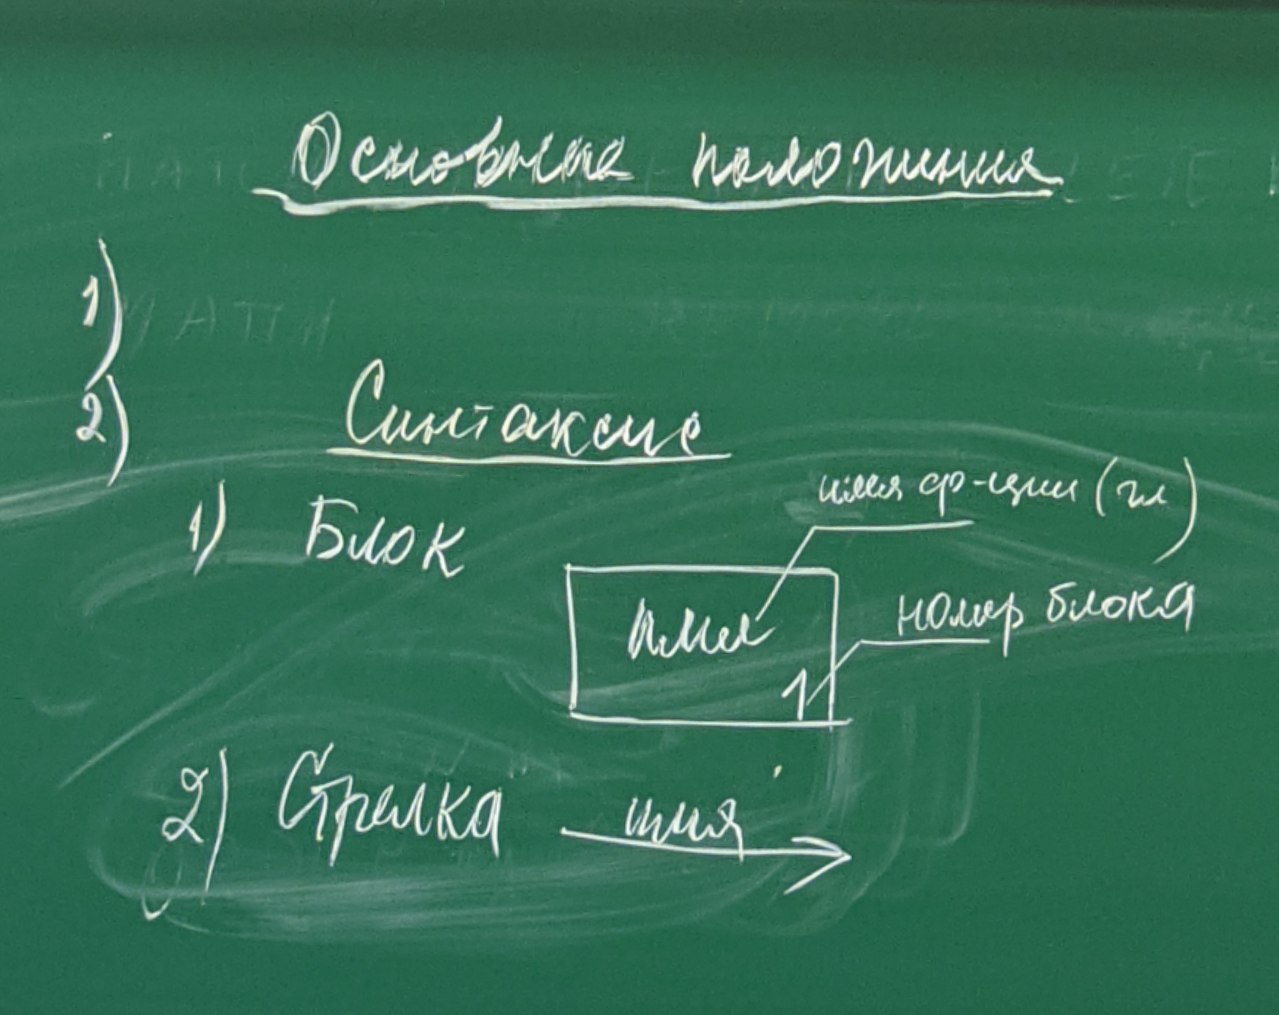 Основные положения
1)
2)
Синтаксис
1) Блок
имя ф-ции (гл)
имя
номер блока
1
2) Стрелка имя